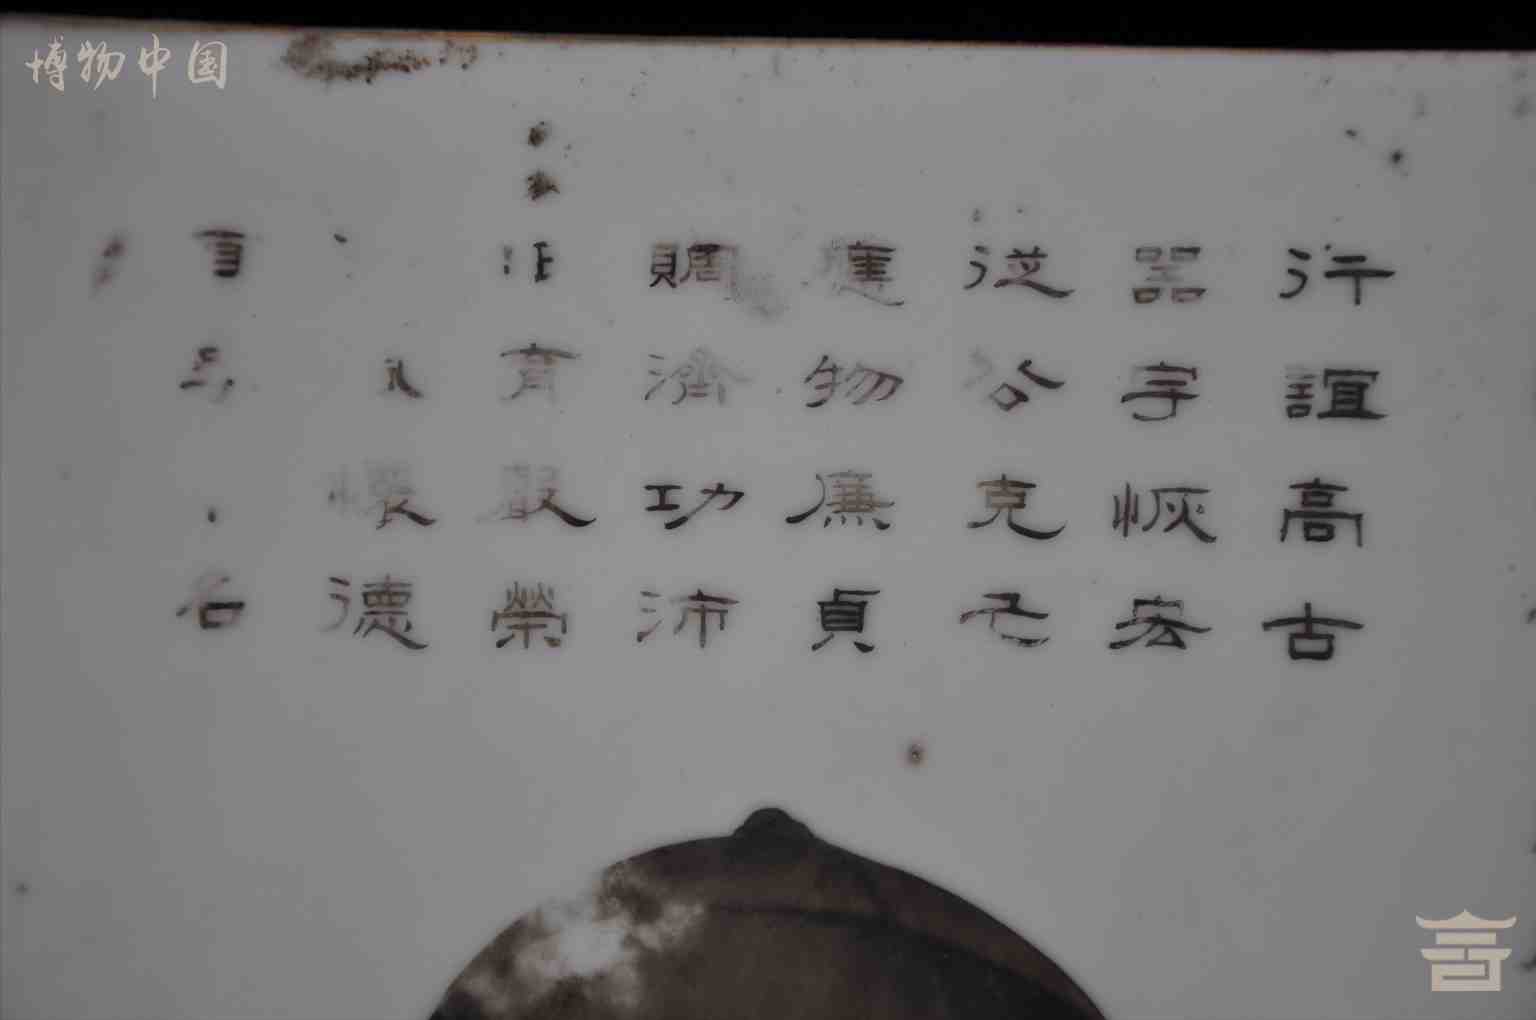 行誼高古
器宇恢宏
從公克己
應物廉貞
賙濟功沛
育嚴榮
懷德
名
博物中国